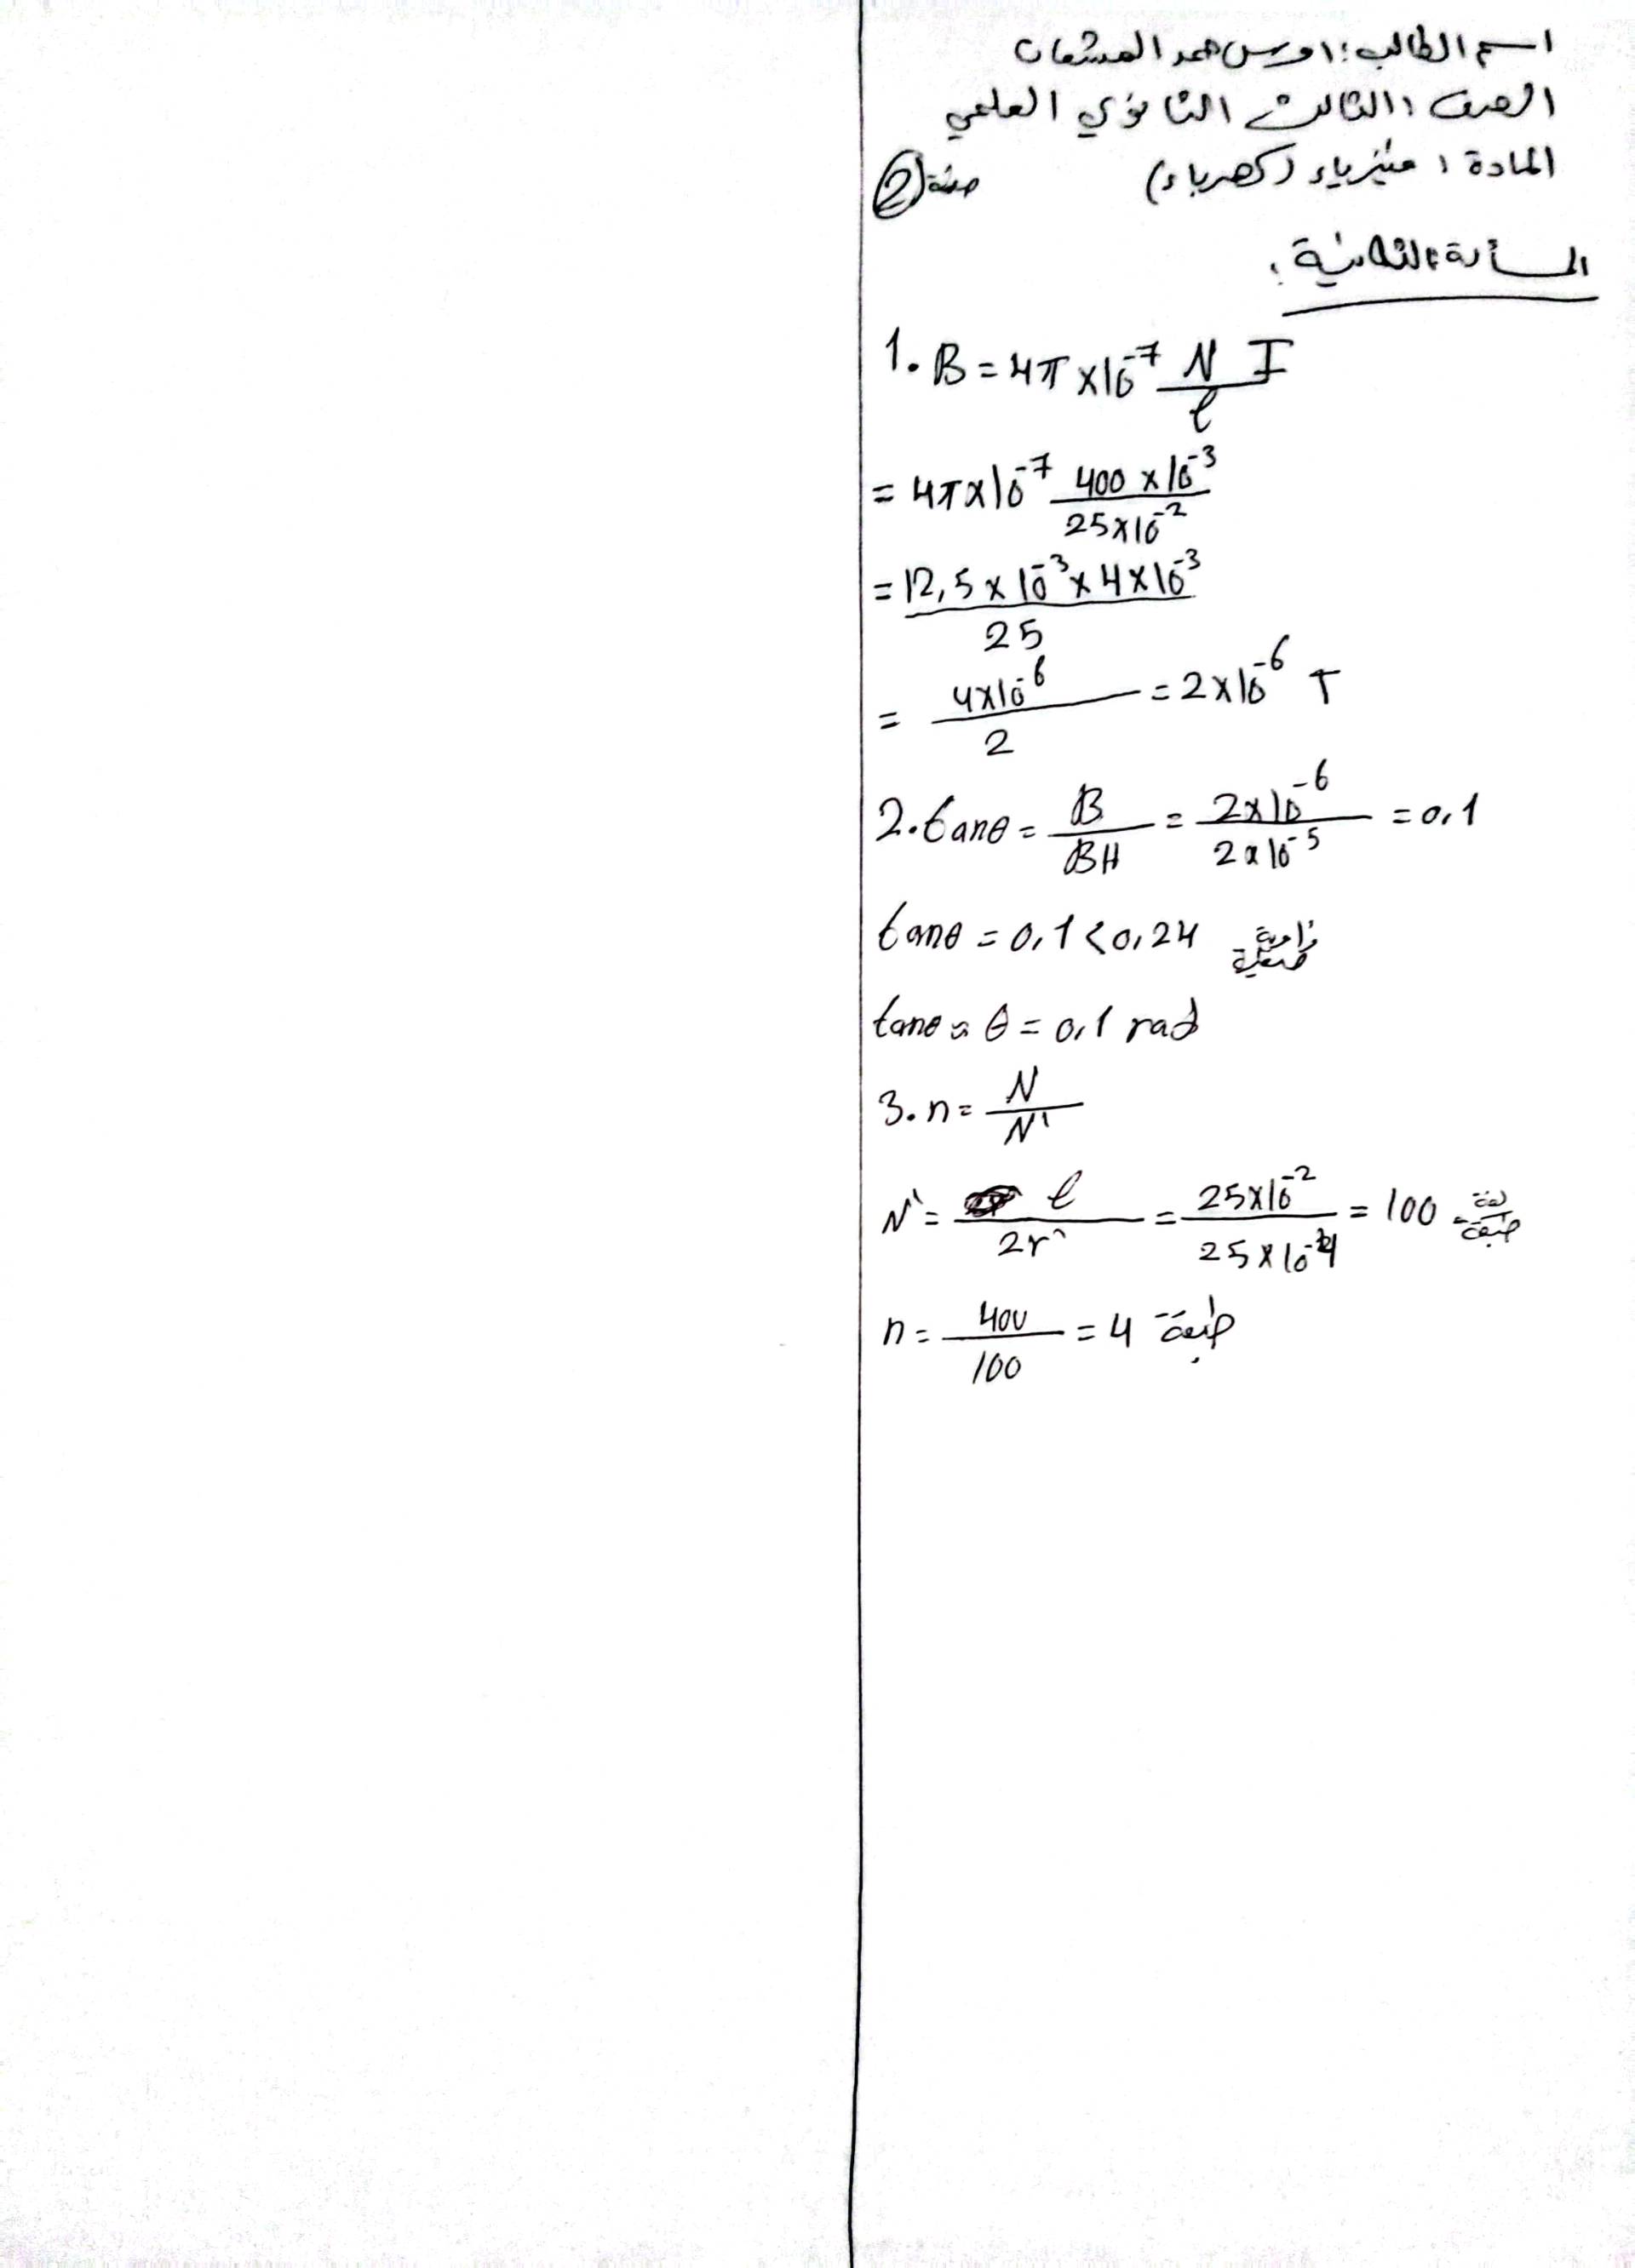 اسم الطالب: اوس حمد المشعان
الصف: الثالث الثانوي العلمي
المادة: فيزياء (كهرباء) صفحة (2)
المسألة الثانية:
1. B = 4π × 10⁻⁷ N I / ℓ
= 4π × 10⁻⁷ 400 × 10⁻³ / 25 × 10⁻²
= 12,5 × 10⁻³ × 4 × 10⁻³ / 25
= 4 × 10⁻⁶ / 2 = 2 × 10⁻⁶ T
2. tanθ = B / BH = 2 × 10⁻⁶ / 2 × 10⁻⁵ = 0,1
tanθ = 0,1 < 0,24 زاوية صغيرة
tanθ ≈ θ = 0,1 rad
3. n = N / N'
N' = ℓ / 2r` = 25 × 10⁻² / 25 × 10⁻⁴ = 100 لفة/طبقة
n = 400 / 100 = 4 طبقة